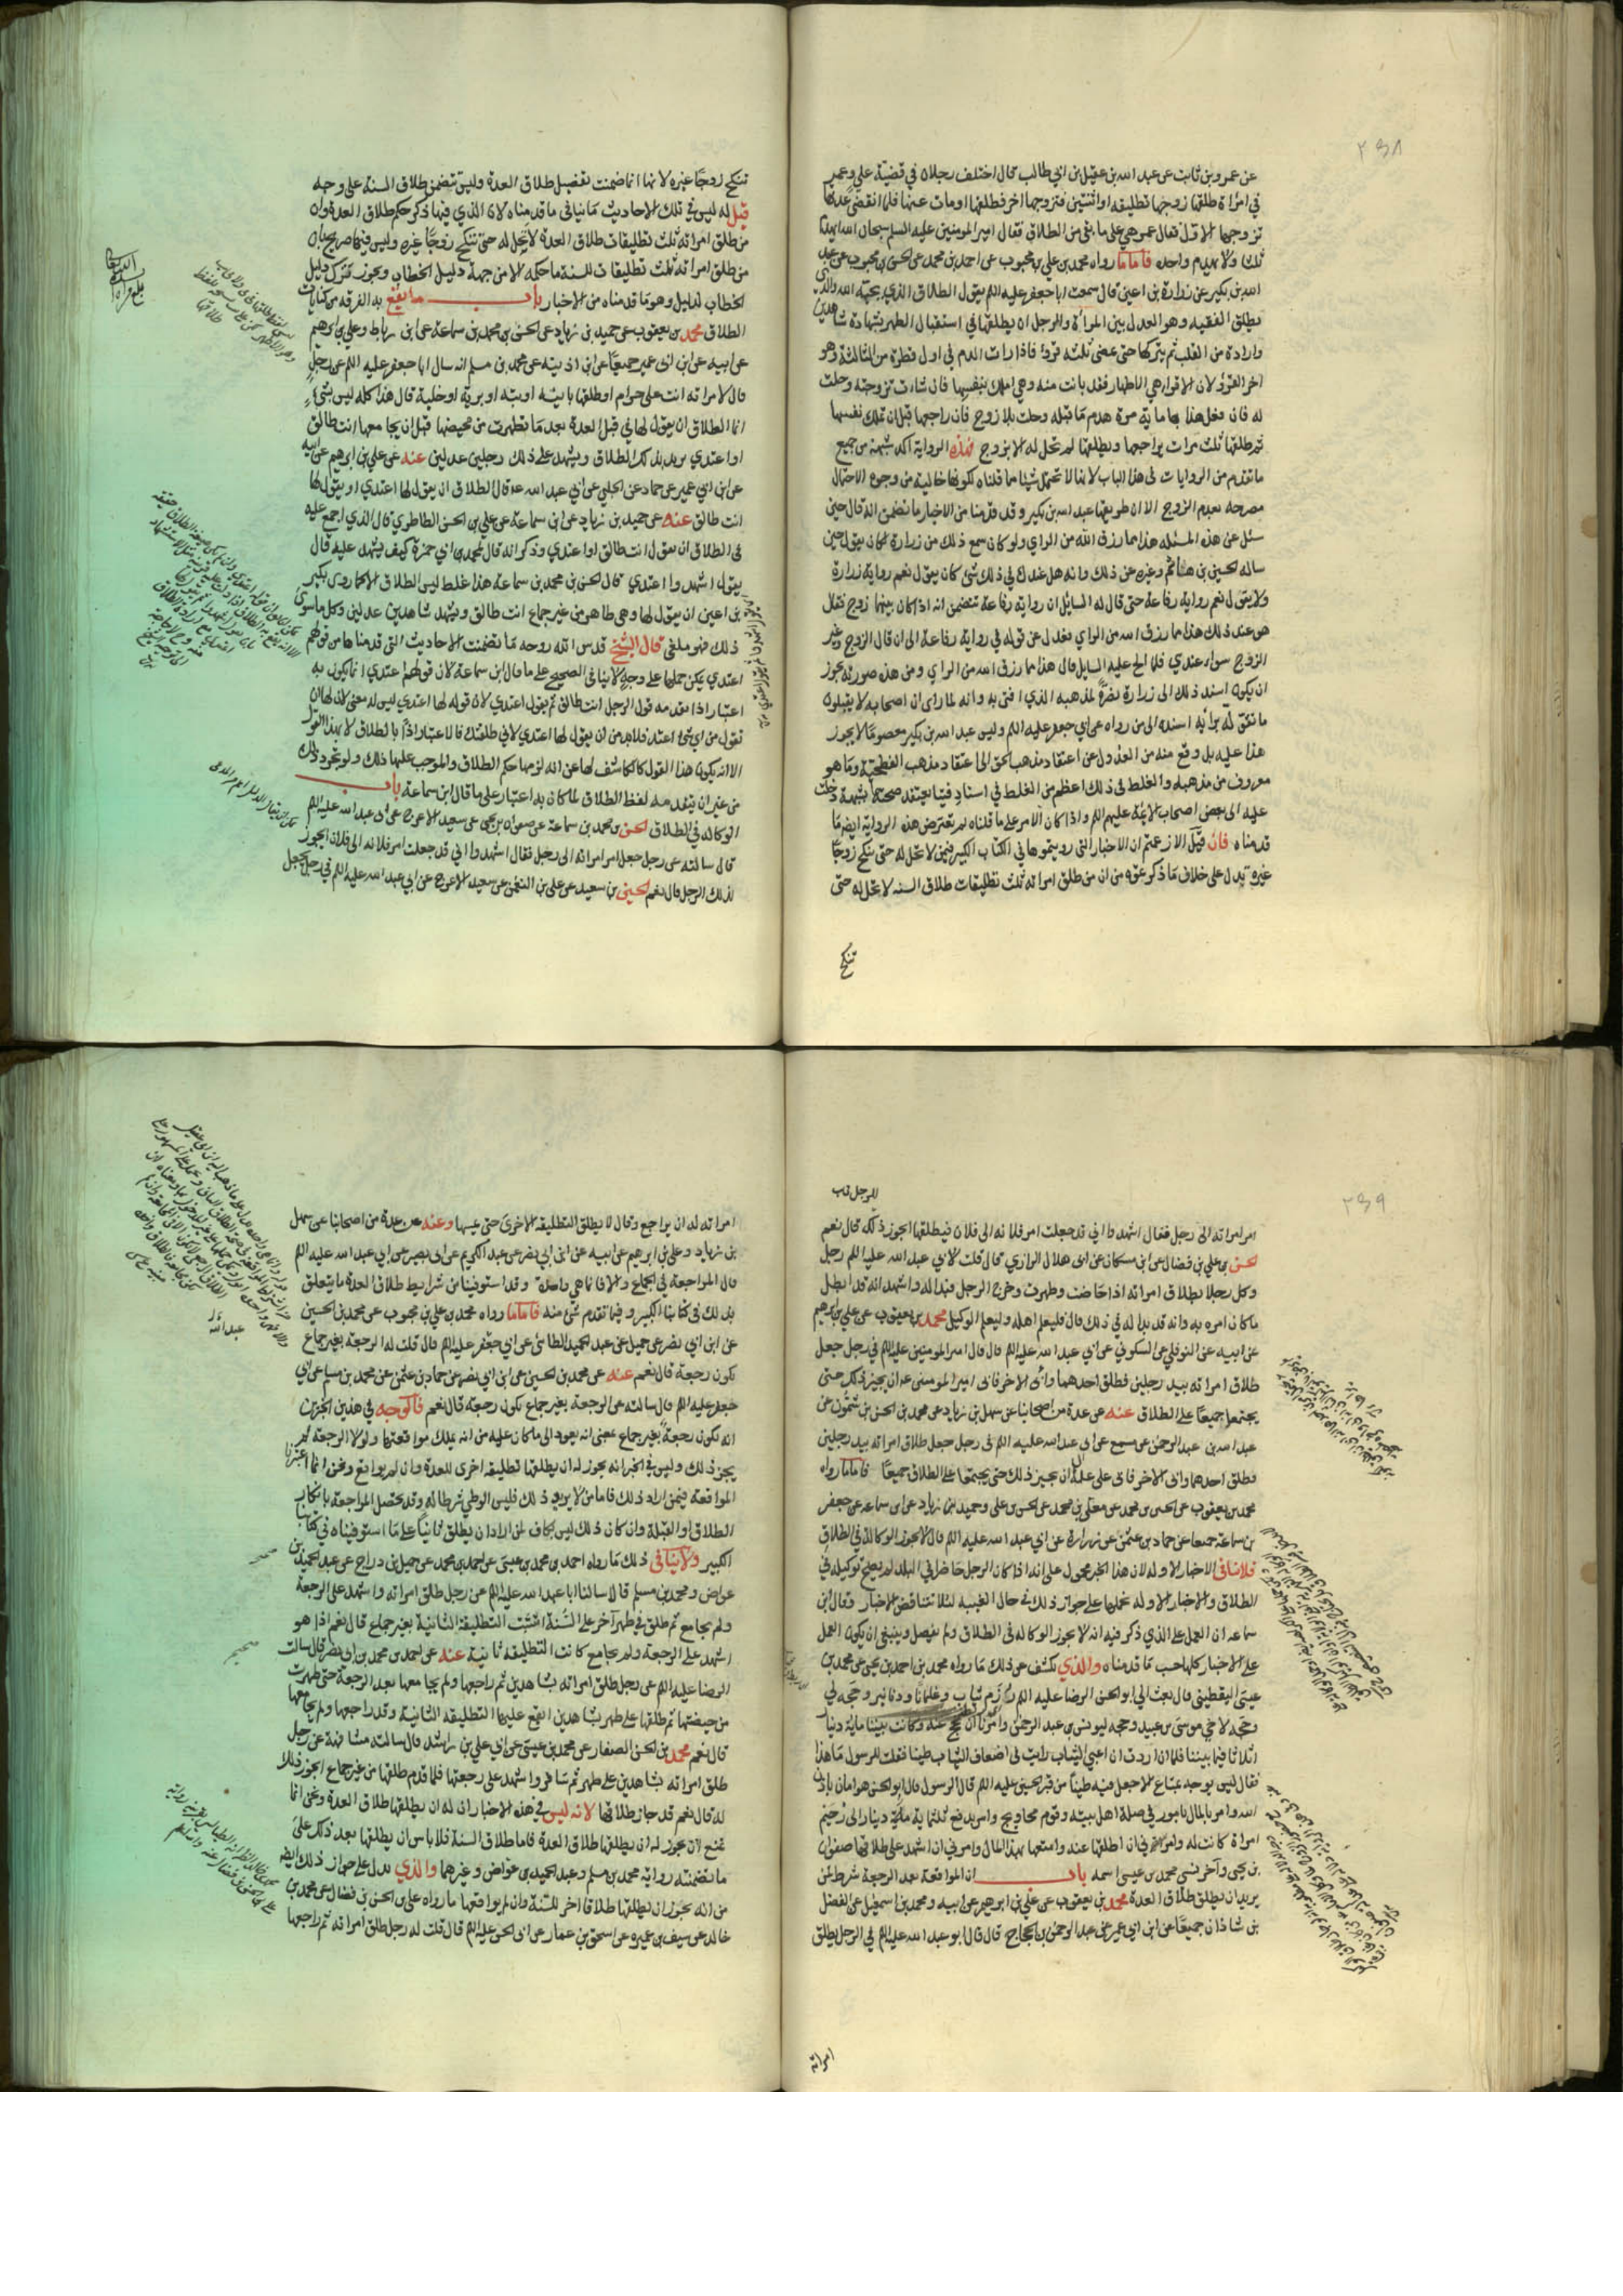 ٢٣٨
عن عمرو بن ثابت عن عبد الله بن عقيل بن ابي طالب قال اختلف رجلان في قضية علي وعمر
في امراة طلقها زوجها تطليقه او اثنتين فتزوجها اخر فطلقها او مات عنها فلما انقضى عدتها
تزوجها الاول فقال عمر هي على ما بقى من الطلاق فقال امير المومنين عليه السلم سبحان الله ايهدم
ثلثا ولا يهدم واحده فاما ما رواه محمد بن علي بن محبوب عن احمد بن محمد عن الحسن بن محبوب عن عبد
الله بن بكير عن زرارة بن اعين قال سمعت ابا جعفر عليه الم يقول الطلاق الذي يحبه الله والذي
يطلق الفقيه وهو العدل بين المراة والرجل ان يطلقها في استقبال الطهر بشهادة شاهدين
وارادة من القلب ثم يتركها حتى تمضى ثلثه قروء فاذا رات الدم في اول قطرة من الثالثة وهو
اخر القرؤ لان الاقراء هي الاطهار فقد بانت منه وهي املك بنفسها فان شاءت تزوجته وحلت
له فان فعل هذا بها ماية مرة هدم ما قبله وحلت بلا زوج فان راجعها قبل ان تملك نفسها
ثم طلقها ثلث مرات يراجعها ويطلقها لم تحل له الا بزوج فهذه الرواية اكد شبهة من جميع
ما تقدم من الروايات في هذا الباب لانها لا تحتمل شيئا مما قلناه لكونها خالية من وجوه الاحتمال
مصرحه بعدم الزوج الا ان طريقها عبد الله بن بكير وقد قدمنا من الاخبار ما تضمن انه قال حين
سئل عن هذه المسئله هذا مما رزق الله من الراي ولو كان سمع ذلك من زرارة لكان يقول حين
ساله الحسين بن هاشم وغيره عن ذلك وانه هل عندك في ذلك شئ كان يقول نعم رواية زرارة
ولا يقول نعم رواية رفاعة حتى قال له السائل ان رواية رفاعة تتضمن انه اذا كان بينهما زوج فقال
هو عند ذلك هذا مما رزق الله من الراي فعدل عن قوله في رواية رفاعة الى ان قال الزوج وغير
الزوج سواء عندي فلما الح عليه السايل قال هذا مما رزق الله من الراي ومن هذه صورته يجوز
ان يكون اسند ذلك الى زرارة نصرة لمذهبه الذي افتى به وانه لما راى ان اصحابه لا يقبلون
ما يقوله برأيه اسنده الى من رواه عن ابي جعفر عليه الم وليس عبد الله بن بكير معصوما لا يجوز
هذا عليه بل وقع منه من العدول عن اعتقاد مذهب الحق الى اعتقاد مذهب الفطحية وما هو
معروف من مذهبه والغلط في ذلك اعظم من الغلط في اسناد فتيا يعتقد صحتها لشبهة دخلت
عليه الى بعض اصحاب الائمة عليهم الم واذا كان الامر على ما قلناه لم تعترض هذه الرواية ايضا ما
قدمناه فان قيل الا زعمتم ان الاخبار التي رويتموها في الكتاب الكبير فيمن لا تحل له حتى تنكح زوجا
غيره تدل على خلاف ما ذكرتموه من ان من طلق امراته ثلث تطليقات طلاق السنه لا تحل له حتى
تنكح
تنكح زوجا غيره لانها انما ضمنت تفصيل طلاق العدة وليس تتضمن طلاق السنة على وجه
قيل له ليس في تلك الاحاديث ما ينافي ما قدمناه لان الذي فيها ذكر حكم طلاق العدة وان
من طلق امراته ثلث تطليقات طلاق العدة لا تحل له حتى تنكح زوجا غيره وليس فيها صريح بان
من طلق امراته ثلث تطليقات للسنة ما حكمه الا من جهة دليل الخطاب ويجوز ترك دليل
الخطاب لدليل وهو ما قدمناه من الاخبار باب ما يقع به الفرقه من كنايات
الطلاق محمد بن يعقوب عن حميد بن زياد عن الحسن بن محمد بن سماعة عن ابن رباط وعلي بن ابرهيم
عن ابيه عن ابن ابي عمير جميعا عن ابن اذينة عن محمد بن مسلم انه سال ابا جعفر عليه الم عن رجل
قال لامراته انت علي حرام او طلقها باينه او بته او برية او خلية قال هذا كله ليس بشئ
انما الطلاق ان يقول لها في قبل العدة بعد ما تطهرت من محيضها قبل ان يجامعها انت طالق
او اعتدي يريد بذلك الطلاق ويشهد على ذلك رجلين عدلين عنه عن علي بن ابرهيم عن ابيه
عن ابن ابي عمير عن حماد عن الحلبي عن ابي عبد الله ع قال الطلاق ان يقول لها اعتدي او يقول لها
انت طالق عنه عن حميد بن زياد عن ابن سماعة عن علي بن الحسن الطاطري قال الذي اجمع عليه
في الطلاق ان يقول انت طالق او اعتدي وذكر انه قال لمحمد بن ابي حمزة كيف يشهد عليه قال
يقول اشهدوا اعتدي قال الحسن بن محمد بن سماعة هذا غلط ليس الطلاق الا كما روى بكير
بن اعين ان يقول لها وهي طاهر من غير جماع انت طالق ويشهد شاهدين عدلين وكل ما سوى
ذلك فهو ملغى قال الشيخ قدس الله روحه ما تضمنت الاحاديث التي قدمناها من قولهم
اعتدي يمكن حملها على وجه لا ينافي الصحيح على ما قال ابن سماعة لان قولهم اعتدي انما يكون به
اعتبار اذا تقدمه قول الرجل انت طالق ثم يقول اعتدي لان قوله لها اعتدي ليس له معنى لان لها ان
تقول من اي شئ اعتد فلا بد من ان يقول لها اعتدي لاني طلقتك فالاعتبار اذا بالطلاق لا بهذا القول
الا انه يكون هذا القول كالكاشف لها عن انه لزمها حكم الطلاق والموجب عليها ذلك ولو تجرد ذلك
من غير ان يتقدمه لفظ الطلاق لما كان به اعتبار على ما قال ابن سماعة باب
الوكاله في الطلاق الحسن بن محمد بن سماعة عن صفوان بن يحيى عن سعيد الاعرج عن ابي عبد الله عليه الم
قال سالته عن رجل جعل امر امراته الى رجل فقال اشهدوا اني قد جعلت امر فلانه الى فلان ايجوز
لذلك الرجل قال نعم الحسين بن سعيد عن علي بن النعمن عن سعيد الاعرج عن ابي عبد الله عليه الم في رجل يجعل
٢٣٩
امر امراته الى رجل فقال اشهدوا اني قد جعلت امر فلانه الى فلان فيطلقها ايجوز ذلك قال نعم
الحسن بن علي بن فضال عن ابن مسكان عن ابي هلال الرازي قال قلت لابي عبد الله عليه الم رجل
وكل رجلا بطلاق امراته اذا حاضت وطهرت وخرج الرجل فبدا له واشهد انه قد ابطل
ما كان امره به وانه قد بدا له في ذلك قال فليعلم اهله وليعلم الوكيل محمد بن يعقوب عن علي بن ابرهيم
عن ابيه عن النوفلي عن السكوني عن ابي عبد الله عليه الم قال قال امير المومنين عليه الم في رجل جعل
طلاق امراته بيد رجلين فطلق احدهما وأبى الاخر فابى امير المومنين ع ان يجيز ذلك حتى
يجتمعا جميعا على الطلاق عنه عن عدة من اصحابنا عن سهل بن زياد عن محمد بن الحسن بن شمون عن
عبد الله بن عبد الرحمن عن مسمع عن ابي عبد الله عليه الم في رجل جعل طلاق امراته بيد رجلين
فطلق احدهما وابى الاخر فابى علي ع ان يجيز ذلك حتى يجتمعا على الطلاق جميعا فاما ما رواه
محمد بن يعقوب عن الحسين بن محمد عن معلى بن محمد عن الحسن بن علي وحميد بن زياد عن ابن سماعه عن جعفر
بن سماعة جميعا عن حماد بن عثمن عن زرارة عن ابي عبد الله عليه الم قال لا تجوز الوكالة في الطلاق
فلا ينافي الاخبار الاوله لان هذا الخبر محمول على انه اذا كان الرجل حاضرا في البلد لم يصح توكيله في
الطلاق والاخبار الاوله نحملها على جواز ذلك في حال الغيبه لئلا تتناقض الاخبار وقال ابن
سماعه ان العمل على الذي ذكر فيه انه لا يجوز الوكاله في الطلاق ولم يفصل وينبغي ان يكون العمل
على الاخبار كلها حسب ما قدمناه والذي يكشف عن ذلك ما رواه محمد بن احمد بن يحيى عن محمد بن
عيسى اليقطيني قال بعث الي ابو الحسن الرضا عليه الم رزم ثياب وغلمانا ودنانير وحجة لي
وحجه لاخي موسى بن عبيد وحجه ليونس بن عبد الرحمن وامرنا ان نحج عنه وكانت بيننا ماية دينار
اثلاثا فيما بيننا فلما ان اردت ان اعبي الثياب رايت في اضعاف الثياب طينا فقلت للرسول ما هذا
فقال ليس يوجه بمتاع الا جعل فيه طينا من قبر الحسين عليه الم قال الرسول قال ابو الحسن هو امان باذن
الله وامر بالمال بامور في صلة اهل بيته وقوم محاويج وامر بدفع ثلثماية دينار الى رحيم
امراة كانت له وامرني ان اطلقها عنه وامتعها بهذا المال وامرني ان اشهد على طلاقها صفوان
بن يحيى وآخر نسى محمد بن عيسى اسمه باب ان المواقعة بعد الرجعة شرط لمن
يريد ان يطلق طلاق العدة محمد بن يعقوب عن علي بن ابرهيم عن ابيه ومحمد بن اسمعيل عن الفضل
بن شاذان جميعا عن ابن ابي عمير عن عبد الرحمن بن الحجاج قال قال ابو عبد الله عليه الم في الرجل يطلق
امراته
امراته له ان يراجع وقال لا يطلق التطليقه الاخرى حتى يمسها وعنه عن عدة من اصحابنا عن سهل
بن زياد وعلي بن ابرهيم عن ابيه عن ابن ابي نصر عن عبد الكريم عن ابي بصير عن ابي عبد الله عليه الم
قال المراجعة في الجماع والا فانما هي واحدة وقد استوفينا من شرايط طلاق العدة ما يتعلق
بذلك في كتابنا الكبير وفيما تقدم شئ منه فاما ما رواه محمد بن علي بن محبوب عن محمد بن الحسين
عن ابن ابي نصر عن جميل عن عبد الحميد الطائي عن ابي جعفر عليه الم قال قلت له الرجعة بغير جماع
تكون رجعة قال نعم عنه عن محمد بن الحسين عن ابن ابي نصر عن حماد بن عثمن عن محمد بن مسلم عن ابي
جعفر عليه الم قال سالته عن الرجعة بغير جماع تكون رجعة قال نعم فالوجه في هذين الخبرين
انه تكون رجعة بغير جماع بمعنى انه يعود الى ما كان عليه من انه يملك مواقعتها ولولا الرجعة لم
يجز ذلك وليس في الخبر انه يجوز له ان يطلقها تطليقة اخرى للعدة وان لم يواقع ونحن انما اعتبرنا
المواقعة فيمن اراد ذلك فاما من لا يريد ذلك فليس الوطي شرطا له وقد تحصل المراجعة بانكار
الطلاق او القبلة وان كان ذلك ليس بكاف لمن اراد ان يطلق ثانيا على ما استوفيناه في كتابنا
الكبير ولا ينافي ذلك ما رواه احمد بن محمد بن عيسى عن احمد بن محمد عن جميل بن دراج عن عبد الحميد بن
عواض ومحمد بن مسلم قالا سالنا ابا عبد الله عليه الم عن رجل طلق امراته واشهد على الرجعة
ولم يجامع ثم طلق في طهر آخر على السنة اتثبت التطليقة الثانية بغير جماع قال نعم اذا هو
اشهد على الرجعة ولم يجامع كانت التطليقه ثانية عنه عن احمد بن محمد بن ابي نصر قال سالت
الرضا عليه الم عن رجل طلق امراته بشاهدين ثم راجعها ولم يجامعها بعد الرجعة حتى طهرت
من حيضتها ثم طلقها على طهر بشاهدين ايقع عليها التطليقه الثانية وقد راجعها ولم يجامعها
قال نعم محمد بن الحسن الصفار عن محمد بن عيسى عن ابي علي بن راشد قال سالته مشافهة عن رجل
طلق امراته بشاهدين على طهر ثم سافر واشهد على رجعتها فلما قدم طلقها من غير جماع ايجوز ذلك
له قال نعم قد جاز طلاقها لانه ليس في هذه الاخبار ان له ان يطلقها طلاق العدة ونحن انما
نمنع ان يجوز له ان يطلقها طلاق العدة فاما طلاق السنة فلا باس ان يطلقها بعد ذلك على
ما تضمنته رواية محمد بن مسلم وعبد الحميد بن عواض وغيرهما والذي يدل على جواز ذلك ايضا
من انه يجوز ان يطلقها طلاقا اخر للسنة وان لم يواقعها ما رواه علي بن الحسن بن فضال عن محمد بن
خالد عن سيف بن عميره عن اسحق بن عمار عن ابي الحسن عليه الم قال قلت له رجل طلق امراته ثم راجعها